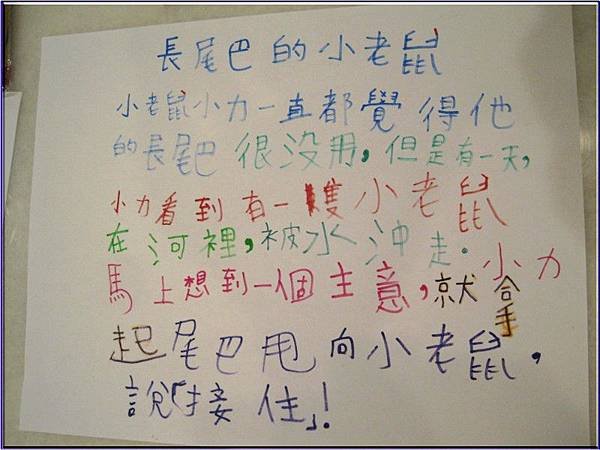 長尾巴的小老鼠
小老鼠小力一直都覺得他
的長尾巴很没用,但是有一天,
小力看到有一隻小老鼠
在河裡,被水沖走.小力
馬上想到一個主意,就拿
起尾巴甩向小老鼠,
說「接住」!